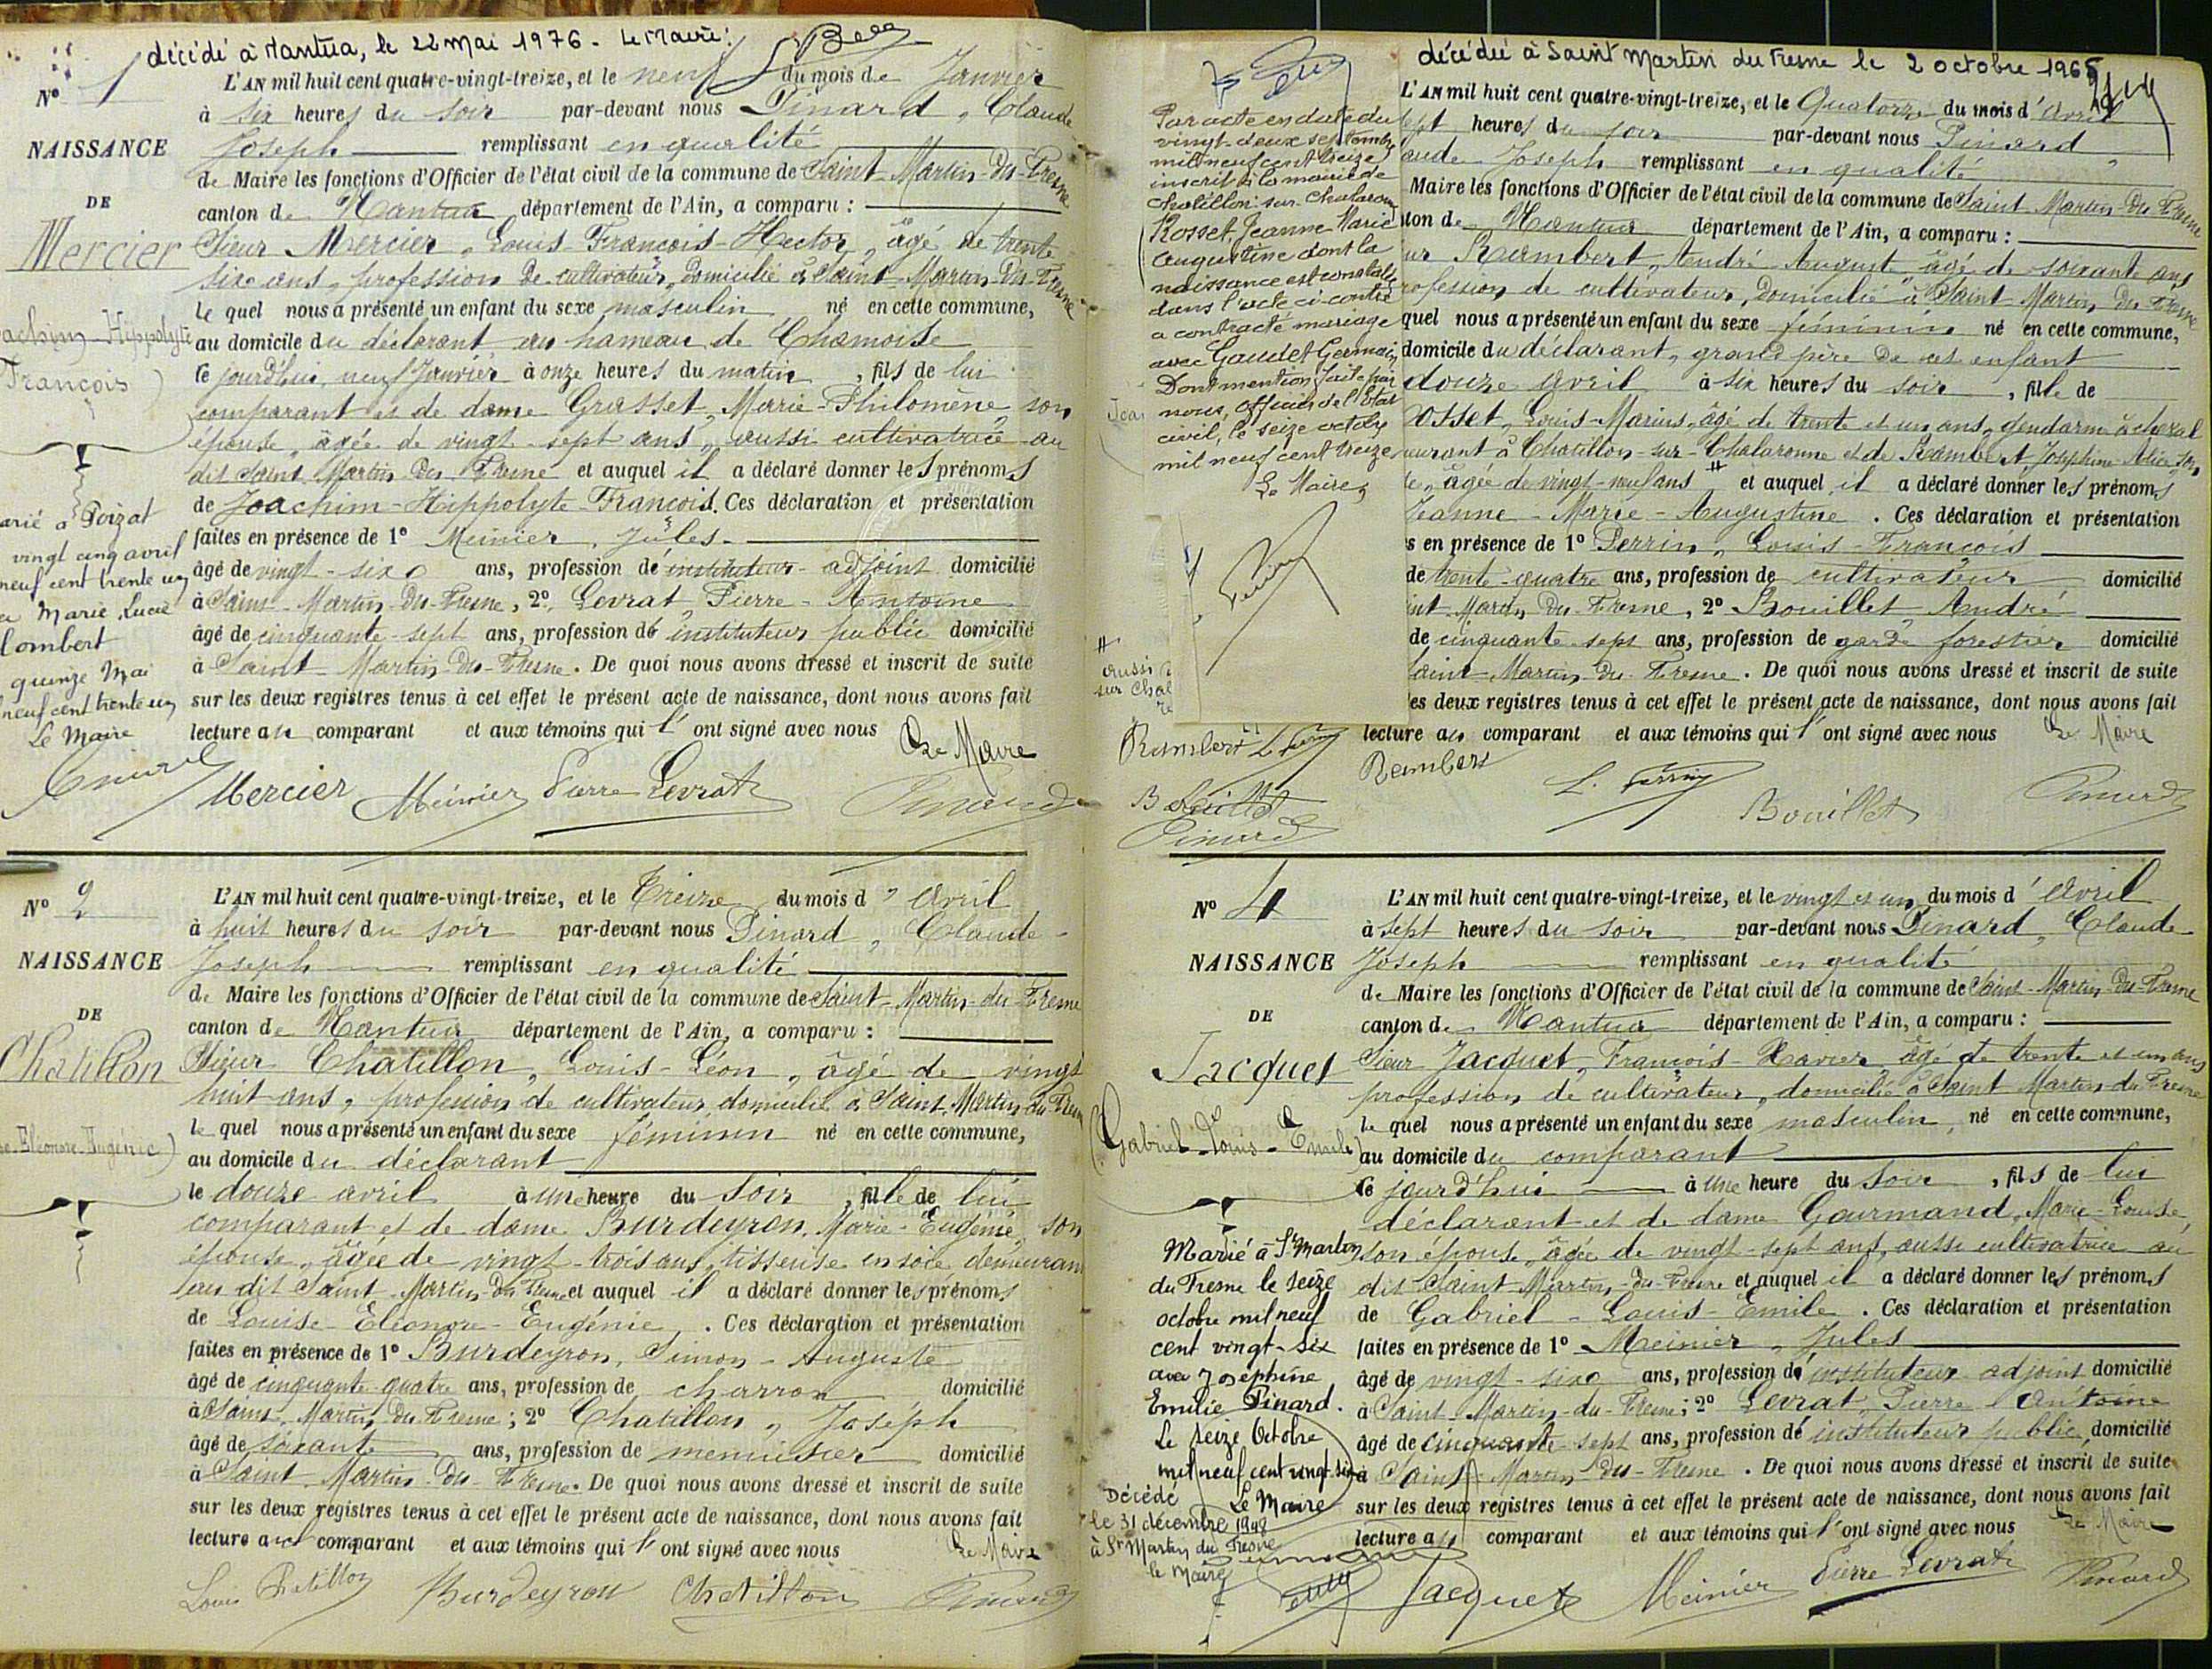 décédé à Nantua, le 22 mai 1976. Le Maire:
N° 1
NAISSANCE
DE
Mercier
achim-Hippolyte
François)
arié à Poizat
vingt cinq avril
neuf cent trente un
Marie Lucie
lombert
quinze Mai
neuf cent trente un
Le Maire
L'AN mil huit cent quatre-vingt-treize, et le neuf du mois de Janvier
à six heures du soir par-devant nous Pinard, Claude
Joseph remplissant en qualité
de Maire les fonctions d'Officier de l'état civil de la commune de Saint-Martin-du-Fresne
canton de Nantua département de l'Ain, a comparu :
Sieur Mercier, Louis-François-Hector, âgé de trente
six ans, profession de cultivateur, domicilié à Saint-Martin-du-Fresne
le quel nous a présenté un enfant du sexe masculin né en cette commune,
au domicile du déclarant au hameau de Chamoise
ce jourd'hui neuf Janvier à onze heures du matin, fils de lui
comparant et de dame Grasset, Marie-Philomène son
épouse, âgée de vingt-sept ans, aussi cultivatrice au
dit Saint Martin du Fresne et auquel il a déclaré donner les prénoms
de Joachim-Hippolyte-François. Ces déclaration et présentation
faites en présence de 1° Meinier, Jules
âgé de vingt-six ans, profession de instituteur-adjoint domicilié
à Saint-Martin-du-Fresne, 2° Levrat Pierre-Antoine
âgé de cinquante-sept ans, profession de instituteur public domicilié
à Saint-Martin-du-Fresne. De quoi nous avons dressé et inscrit de suite
sur les deux registres tenus à cet effet le présent acte de naissance, dont nous avons fait
lecture au comparant et aux témoins qui l'ont signé avec nous Le Maire
Mercier Meinier Pierre Levrat Pinard
N° 2
NAISSANCE
DE
Chatillon
Eléonore-Eugénie)
L'AN mil huit cent quatre-vingt-treize, et le Treize du mois d'avril
à huit heures du soir par-devant nous Pinard, Claude-
Joseph remplissant en qualité
de Maire les fonctions d'Officier de l'état civil de la commune de Saint-Martin-du-Fresne
canton de Nantua département de l'Ain, a comparu :
Sieur Chatillon, Louis-Léon, âgé de vingt
huit ans, profession de cultivateur, domicilié à Saint-Martin-du-Fresne
le quel nous a présenté un enfant du sexe féminin né en cette commune,
au domicile du déclarant
le douze avril à une heure du soir, fille de lui
comparant et de dame Burdeyron, Marie-Eugénie, son
épouse, âgée de vingt-trois ans, tisseuse en soie demeurant
au dit Saint-Martin-du-Fresne et auquel il a déclaré donner les prénoms
de Louise-Eléonore-Eugénie. Ces déclaration et présentation
faites en présence de 1° Burdeyron, Simon-Auguste
âgé de cinquante-quatre ans, profession de charron domicilié
à Saint-Martin-du-Fresne; 2° Chatillon, Joseph
âgé de soixante ans, profession de menuisier domicilié
à Saint-Martin-du-Fresne. De quoi nous avons dressé et inscrit de suite
sur les deux registres tenus à cet effet le présent acte de naissance, dont nous avons fait
lecture au comparant et aux témoins qui l'ont signé avec nous Le Maire
Louis Chatillon Burdeyron Chatillon Pinard
décédée à Saint Martin du Fresne le 2 octobre 1965
Par acte en date du
vingt-deux septembre
mil neuf cent treize
inscrit à la mairie de
Chatillon-sur-Chalaronne
Rosset, Jeanne Marie
Augustine dont la
naissance est constatée
dans l'acte ci-contre
a contracté mariage
avec Gaudet Germain
Dont mention faite par
nous, officier de l'Etat
civil, le seize octobre
mil neuf cent treize
Le Maire,
aussi
sur Chal
Rambert L. Perrin
Bouillet
Pinard
L'AN mil huit cent quatre-vingt-treize, et le Quatorze du mois d'avril
sept heures du soir par-devant nous Pinard
aude Joseph remplissant en qualité
Maire les fonctions d'Officier de l'état civil de la commune de Saint-Martin-du-Fresne
ton de Nantua département de l'Ain, a comparu :
ur Rambert, André-Auguste, âgé de soixante ans
rofession de cultivateur, domicilié à Saint-Martin-du-Fresne
quel nous a présenté un enfant du sexe féminin né en cette commune,
domicile du déclarant, grand père de cet enfant
douze avril à six heures du soir, fille de
osset, Louis-Marius, âgé de trente et un ans, gendarme à cheval
eurant à Chatillon-sur-Chalaronne et de Rambert Joséphine-Alice, son
âgée de vingt-neuf ans # et auquel il a déclaré donner les prénoms
Jeanne-Marie-Augustine. Ces déclaration et présentation
s en présence de 1° Perrin, Louis-François
de trente-quatre ans, profession de cultivateur domicilié
int-Martin-du-Fresne, 2° Bouillet André
de cinquante sept ans, profession de garde forestier domicilié
Saint-Martin-du-Fresne. De quoi nous avons dressé et inscrit de suite
les deux registres tenus à cet effet le présent acte de naissance, dont nous avons fait
lecture au comparant et aux témoins qui l'ont signé avec nous Le Maire
Rambert L. Perrin Bouillet Pinard
N° 4
NAISSANCE
DE
Jacquet
(Gabriel-Louis-Emile)
Marié à St Martin
du Fresne le seize
octobre mil neuf
cent vingt-six
avec Joséphine
Emilie Pinard.
Le seize Octobre
mil neuf cent vingt-six
Le Maire
Décédé
le 31 décembre 1948
à St Martin du Fresne
le Maire
L'AN mil huit cent quatre-vingt-treize, et le vingt et un du mois d'avril
à sept heures du soir par-devant nous Pinard, Claude-
Joseph remplissant en qualité
de Maire les fonctions d'Officier de l'état civil de la commune de Saint-Martin-du-Fresne
canton de Nantua département de l'Ain, a comparu :
Sieur Jacquet, François-Xavier, âgé de trente et un ans
profession de cultivateur, domicilié à Saint-Martin-du-Fresne
le quel nous a présenté un enfant du sexe masculin, né en cette commune,
au domicile du comparant
ce jourd'hui à une heure du soir, fils de lui
déclarant et de dame Gourmand, Marie-Louise,
son épouse, âgée de vingt-sept ans, aussi cultivatrice au
dit Saint-Martin-du-Fresne et auquel il a déclaré donner les prénoms
de Gabriel-Louis-Emile. Ces déclaration et présentation
faites en présence de 1° Meinier, Jules
âgé de vingt-six ans, profession de instituteur adjoint domicilié
à Saint-Martin-du-Fresne; 2° Levrat, Pierre Antoine
âgé de cinquante-sept ans, profession de instituteur public, domicilié
à Saint-Martin-du-Fresne. De quoi nous avons dressé et inscrit de suite
sur les deux registres tenus à cet effet le présent acte de naissance, dont nous avons fait
lecture au comparant et aux témoins qui l'ont signé avec nous Le Maire
Jacquet Meinier Pierre Levrat Pinard